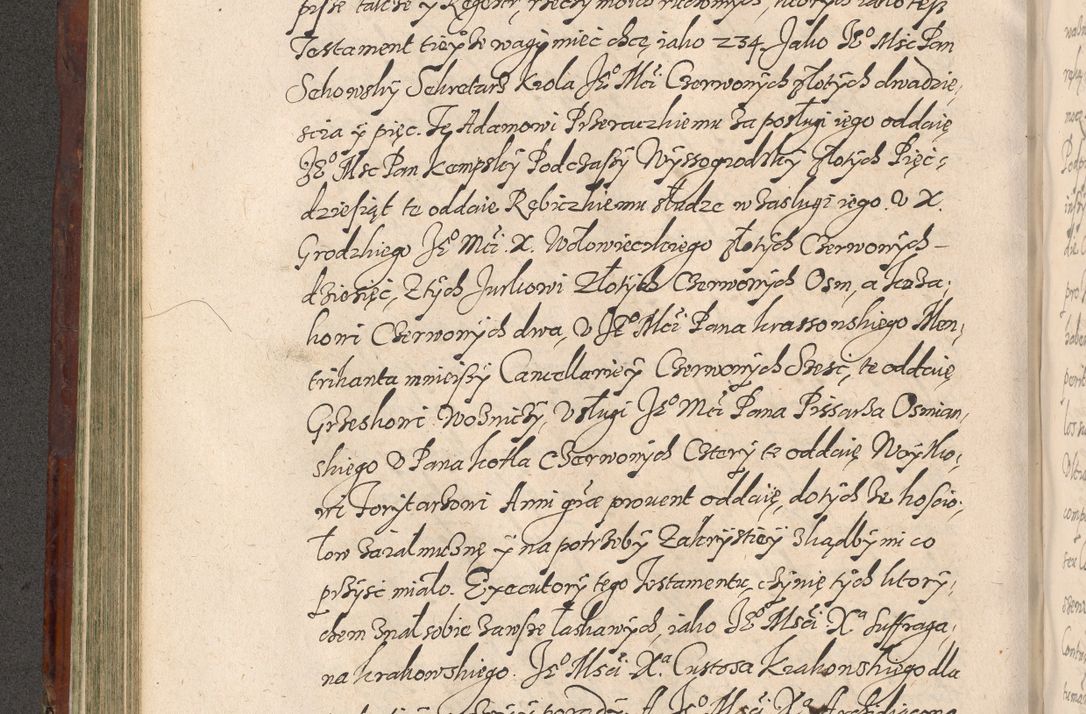 pisse także y Regestr, rzeczy moich ruchomych, ktorych iako tesz
Testament tieyże wagi miec chcę iako 234. Jako Je° Msc Pan
Sekowsky Sekretarz Krola Je° Mci Czerwonych złotych dwadzie,
scia y pięc. Te Adamowi Przeraczkiemu za posługi iego oddaię
Je° Msc Pan Kempsky Podczassy Wyssogrodzky złotych Pięc,
dziesiąt te oddaie Rębiczkiemu słudze w zaslugi iego. U X.
Grodzkiego Je° Mci X. Wołowieczkiego złotych Czerwonych
dziesięc, z tych Jurkowi Złotych Czerwonych Osm, a
kowi Czerwonych dwa, U Je° Mci Pana Krassowskiego Men,
trikanta mnieiszy Cancellariey Czerwonych Szesc, te oddaię
Grzeskowi Wozniczy, U sługi Je° Mci Pana Pissarza Osmian,
skiego U Pana Kotła Czerwonych Cztery te oddaię Woytko,
wi Torytarzowi Anni gręe prouent oddaię, do tych ze koscio,
łow za ialmuznę y na potrzeby Zakrystiey zkądby mi co
przysc miało. Executory tego Testamentu, czynię tych ktory,
chem znał sobie zawsze łaskawych, iako Je° Msci Xª Suffraga,
na krakowskiego. Je° Msci Xª Custosa Krakowskiego dla
Je° Msci Xª Archidiacona